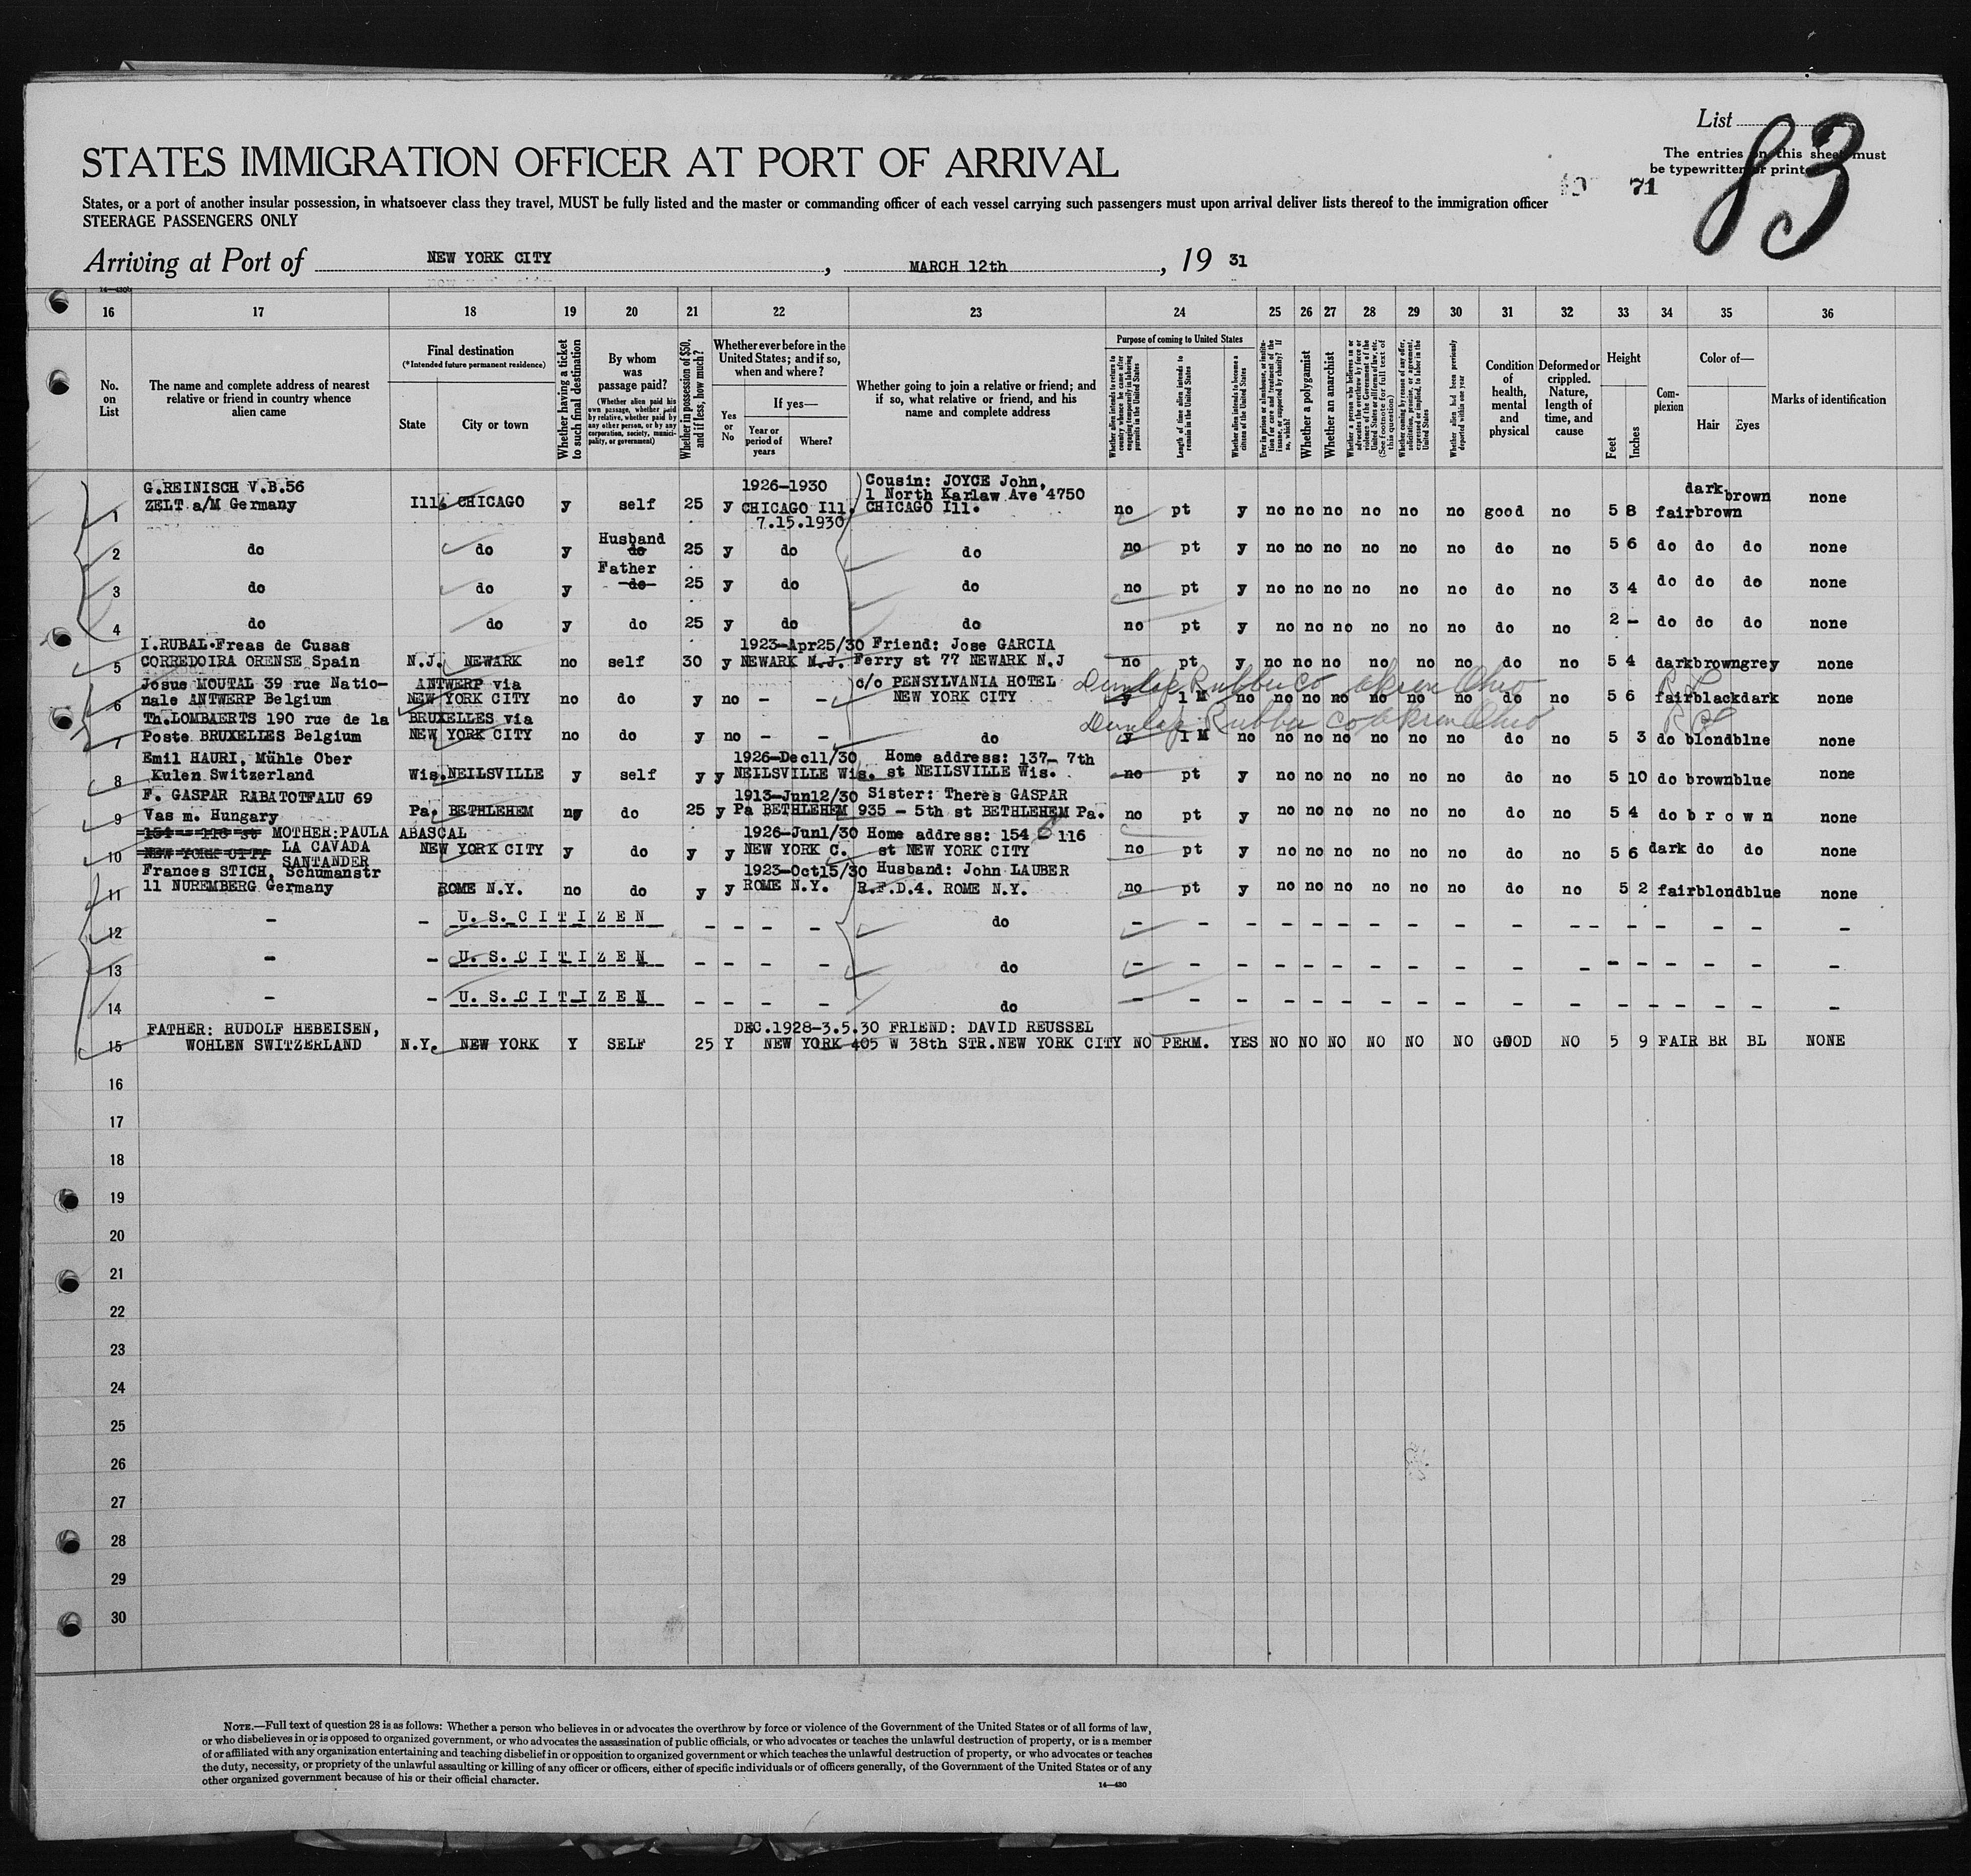 List
83
The entries on this sheet must
be typewritten or printed
71
STATES IMMIGRATION OFFICER AT PORT OF ARRIVAL
States, or a port of another insular possession, in whatsoever class they travel, MUST be fully listed and the master or commanding officer of each vessel carrying such passengers must upon arrival deliver lists thereof to the immigration officer
STEERAGE PASSENGERS ONLY
Arriving at Port of NEW YORK CITY, MARCH 12th, 19 31
14—430b
16 17 18 19 20 21 22 23 24 25 26 27 28 29 30 31 32 33 34 35 36
No. on List
The name and complete address of nearest relative or friend in country whence alien came
Final destination
(*Intended future permanent residence)
State
City or town
Whether having a ticket to such final destination
By whom was passage paid?
(Whether alien paid his own passage, whether paid by relative, whether paid by any other person, or by any corporation, society, municipality, or government)
Whether in possession of $50, and if less, how much?
Whether ever before in the United States; and if so, when and where?
Yes or No
If yes—
Year or period of years
Where?
Whether going to join a relative or friend; and if so, what relative or friend, and his name and complete address
Purpose of coming to United States
Whether alien intends to return to country whence he came after engaging temporarily in laboring pursuits in the United States
Length of time alien intends to remain in the United States
Whether alien intends to become a citizen of the United States
Ever in prison or almshouse, or institution for care and treatment of the insane, or supported by charity? If so, which?
Whether a polygamist
Whether an anarchist
Whether a person who believes in or advocates the overthrow by force or violence of the Government of the United States or all forms of law, etc. (See footnote for full text of this question)
Whether coming by reason of any offer, solicitation, promise, or agreement, expressed or implied, to labor in the United States
Whether alien had been previously deported within one year
Condition of health, mental and physical
Deformed or crippled. Nature, length of time, and cause
Height
Feet
Inches
Complexion
Color of—
Hair
Eyes
Marks of identification
G.REINISCH V.B.56 1926-1930 Cousin: JOYCE John,
1 North Karlaw Ave 4750 dark brown
1 ZELT a/M Germany Ill. CHICAGO y self 25 y CHICAGO Ill. CHICAGO Ill. no pt y no no no no no no good no 5 8 fair brown none
7.15.1930
Husband
2 do do y do 25 y do do no pt y no no no no no no do no 5 6 do do do none
Father
3 do do y do 25 y do do no pt y no no no no no no do no 3 4 do do do none
4 do do y do 25 y do do no pt y no no no no no no do no 2 - do do do none
I.RUBAL.Freas de Cusas 1923-Apr25/30 Friend: Jose GARCIA
5 CORREDOIRA ORENSE Spain N.J. NEWARK no self 30 y NEWARK N.J. Ferry st 77 NEWARK N.J no pt y no no no no no no do no 5 4 dark brown grey none
Josue MOUTAL 39 rue Natio- ANTWERP via c/o PENSYLVANIA HOTEL Dunlap Rubber Co Akron Ohio
6 nale ANTWERP Belgium NEW YORK CITY no do y no - - NEW YORK CITY y 1 M no no no no no no no do no 5 6 fair black dark none
Th.LOMBAERTS 190 rue de la BRUXELLES via Dunlap Rubber Co Akron Ohio
7 Poste BRUXELLES Belgium NEW YORK CITY no do y no - - do y 1 M no no no no no no no do no 5 3 do blond blue none
Emil HAURI, Mühle Ober 1926-Dec11/30 Home address: 137- 7th
8 Kulen Switzerland Wis. NEILSVILLE y self y y NEILSVILLE Wis. st NEILSVILLE Wis. no pt y no no no no no no do no 5 10 do brown blue none
F. GASPAR RABATOTFALU 69 1913-Jun12/30 Sister: Theres GASPAR
9 Vas m. Hungary Pa. BETHLEHEM ny do 25 y Pa BETHLEHEM 935 - 5th st BETHLEHEM Pa. no pt y no no no no no no do no 5 4 do b r o w n none
154 - 116 st MOTHER: PAULA ABASCAL 1926-Jun1/30 Home address: 154 E 116
10 NEW YORK CITY LA CAVADA NEW YORK CITY y do y y NEW YORK C. st NEW YORK CITY no pt y no no no no no no do no 5 6 dark do do none
SANTANDER
Frances STICH, Schumanstr 1923-Oct15/30 Husband: John LAUBER
11 11 NUREMBERG Germany ROME N.Y. no do y y ROME N.Y. R.F.D.4. ROME N.Y. no pt y no no no no no no do no 5 2 fair blond blue none
12 - - U. S. C I T I Z E N - - - - do - - - - - - - - - - - - - - - - -
13 - - U. S. C I T I Z E N - - - - do - - - - - - - - - - - - - - - - -
14 - - U. S. C I T I Z E N - - - - do - - - - - - - - - - - - - - - - -
FATHER: RUDOLF HEBEISEN, DEC.1928-3.5.30 FRIEND: DAVID REUSSEL
15 WOHLEN SWITZERLAND N.Y. NEW YORK Y SELF 25 Y NEW YORK 405 W 38th STR.NEW YORK CITY NO PERM. YES NO NO NO NO NO NO GOOD NO 5 9 FAIR BR BL NONE
16
17
18
19
20
21
22
23
24
25
26
27
28
29
30
NOTE.—Full text of question 28 is as follows: Whether a person who believes in or advocates the overthrow by force or violence of the Government of the United States or of all forms of law,
or who disbelieves in or is opposed to organized government, or who advocates the assassination of public officials, or who advocates or teaches the unlawful destruction of property, or is a member
of or affiliated with any organization entertaining and teaching disbelief in or opposition to organized government or which teaches the unlawful destruction of property, or who advocates or teaches
the duty, necessity, or propriety of the unlawful assaulting or killing of any officer or officers, either of specific individuals or of officers generally, of the Government of the United States or of any
other organized government because of his or their official character.
14—430